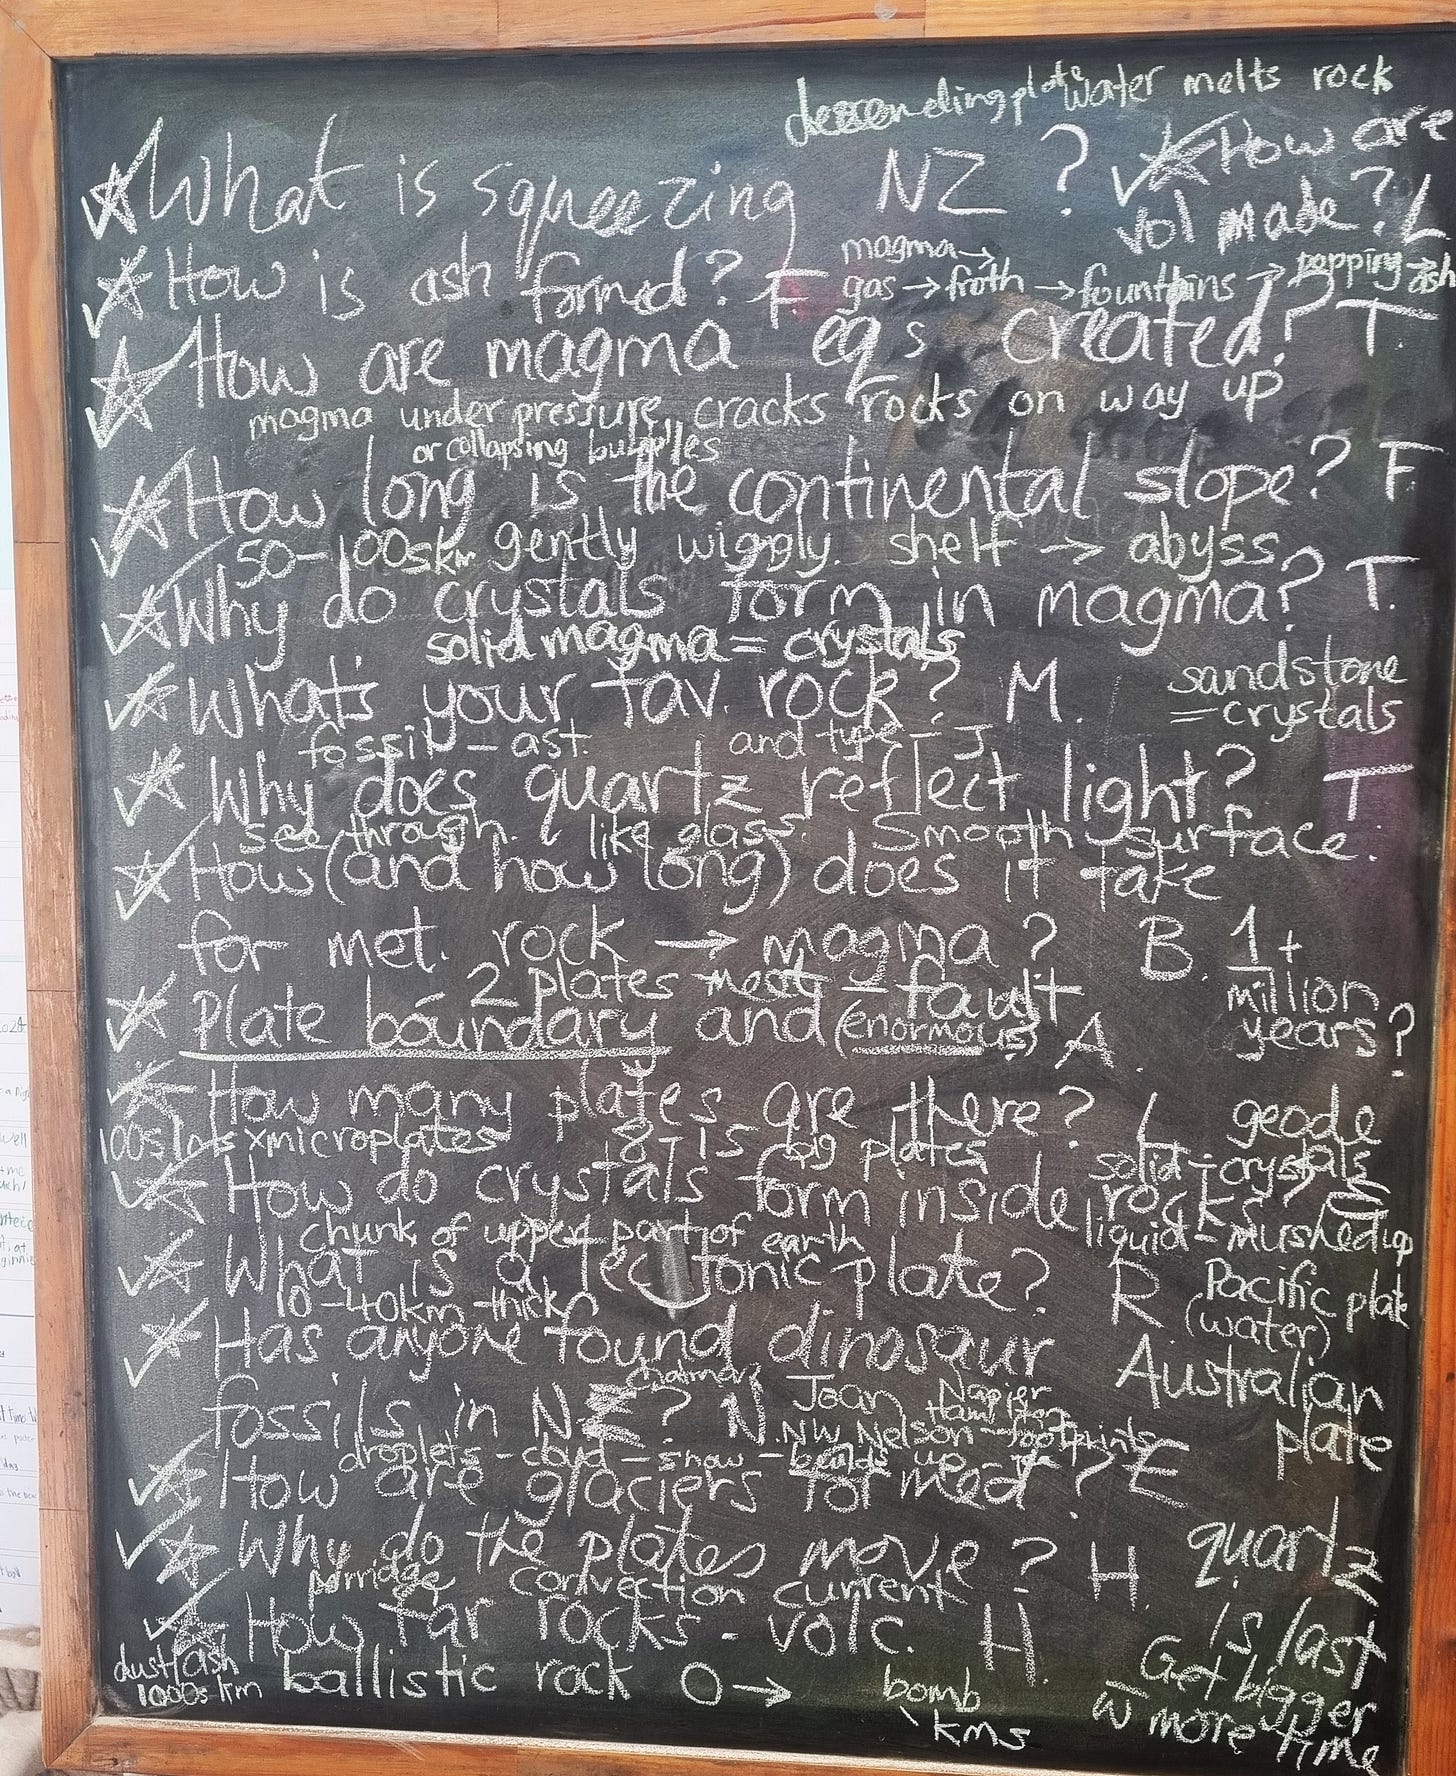 descending plate water melts rock
What is squeezing NZ ?
How are
vol made? L
How is ash formed? F
magma →
gas → froth → fountains → popping → ash
How are magma eq's created? T.
magma under pressure, cracks rocks on way up
or collapsing bubbles
How long is the continental slope? F.
50-100skm gently wiggly. shelf → abyss
Why do crystals form in magma? T.
solid magma = crystals
What's your fav. rock? M.
sandstone
= crystals
fossil - ast. and type - J
Why does quartz reflect light? T.
see through. like glass. Smooth surface.
How (and how long) does it take
for met. rock → magma? B.
1+
million
years?
2 plates meet = fault
Plate boundary and (enormous) A.
How many plates are there? L
100s/lots x microplates 8-15 big plates
geode
solid - crystals
liquid - mushed up
How do crystals form inside rocks? E
chunk of upper part of earth
What is a tectonic plate? R
10-40km thick
Pacific plate
(water)
Australian
plate
Has anyone found dinosaur
fossils in NZ? N.
Joan
Napier
NW Nelson - footprints
droplets - cloud - snow - builds up -
How are glaciers formed? E
Why do the plates move? H.
porridge convection current
How far rocks - volc. H.
dust/ash
1000s km
ballistic rock O →
bomb
kms
quartz
is last
Get bigger
w̄ more time